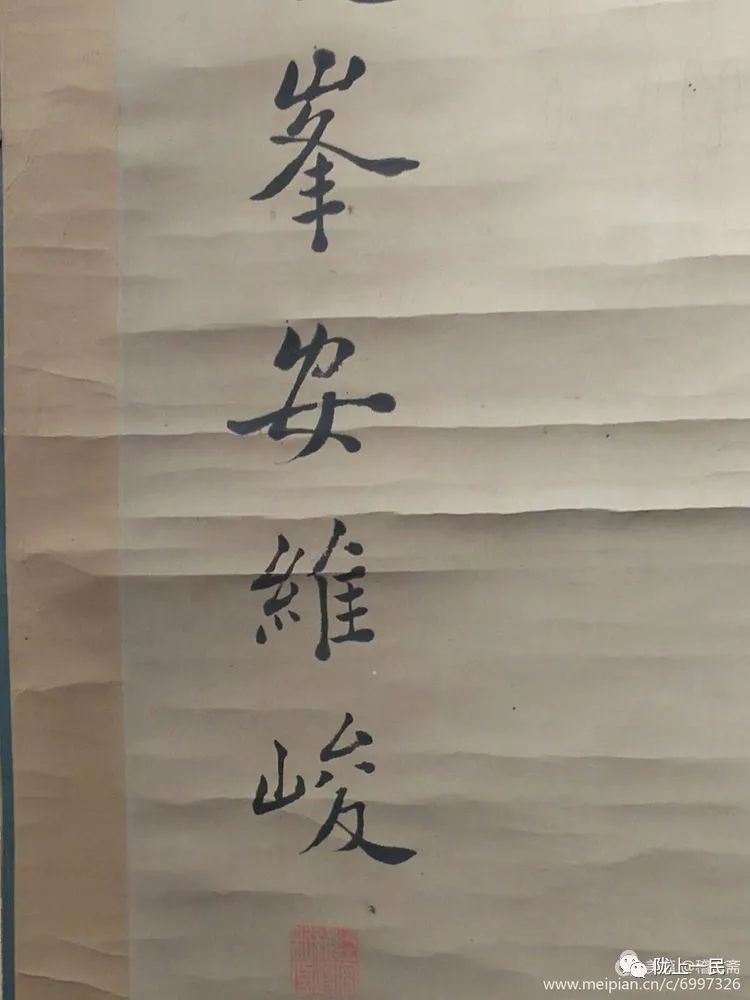 峯安維峻
陇上一民
www.meipian.cn/c/6997326